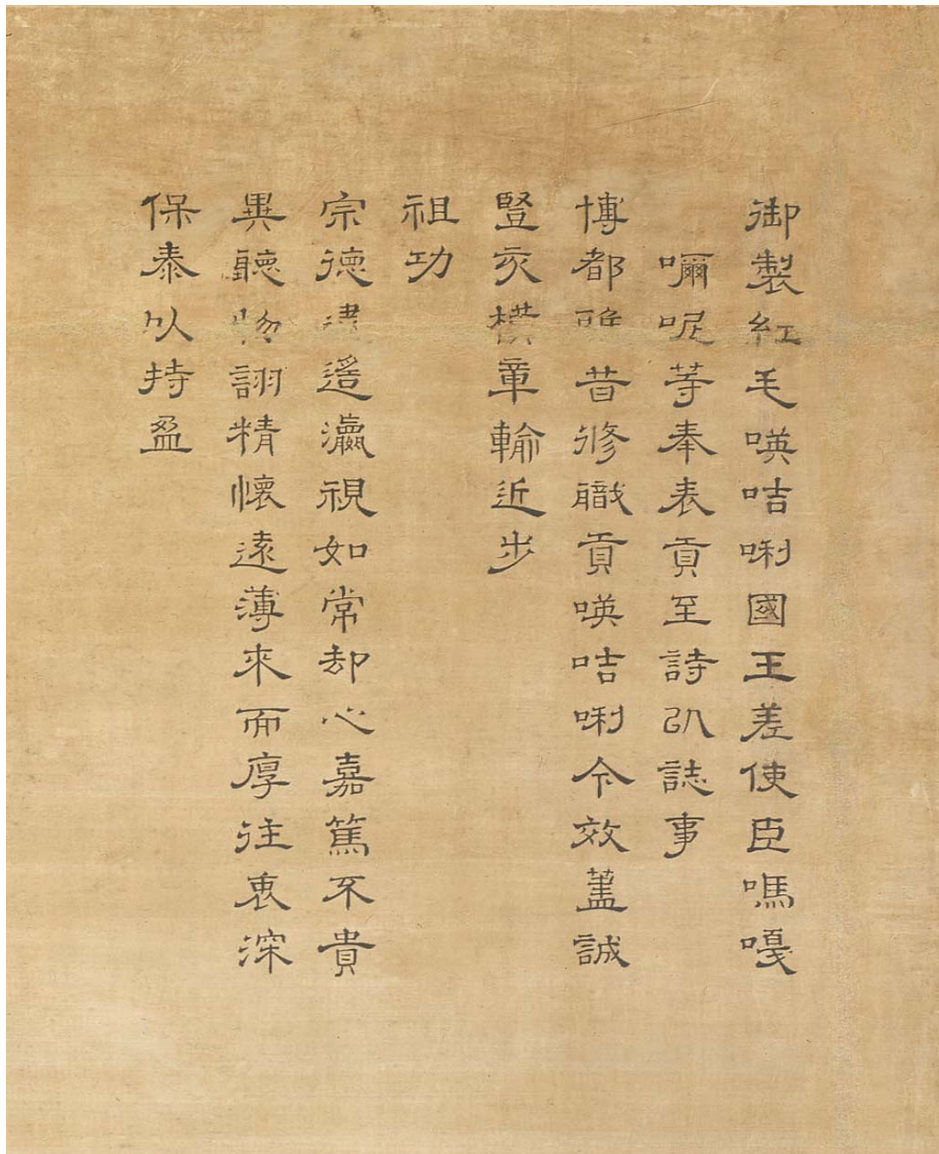 御製紅毛𠸄咭唎國王差使臣嗎嘎
嘪呢等奉表貢至詩以誌事
博都雅昔修職貢𠸄咭唎今效藎誠
豎亥橫章輸近步
祖功
宗德逮遙瀛視如常却心嘉篤不貴
異聽物詡精懷遠薄來而厚往衷深
保泰以持盈